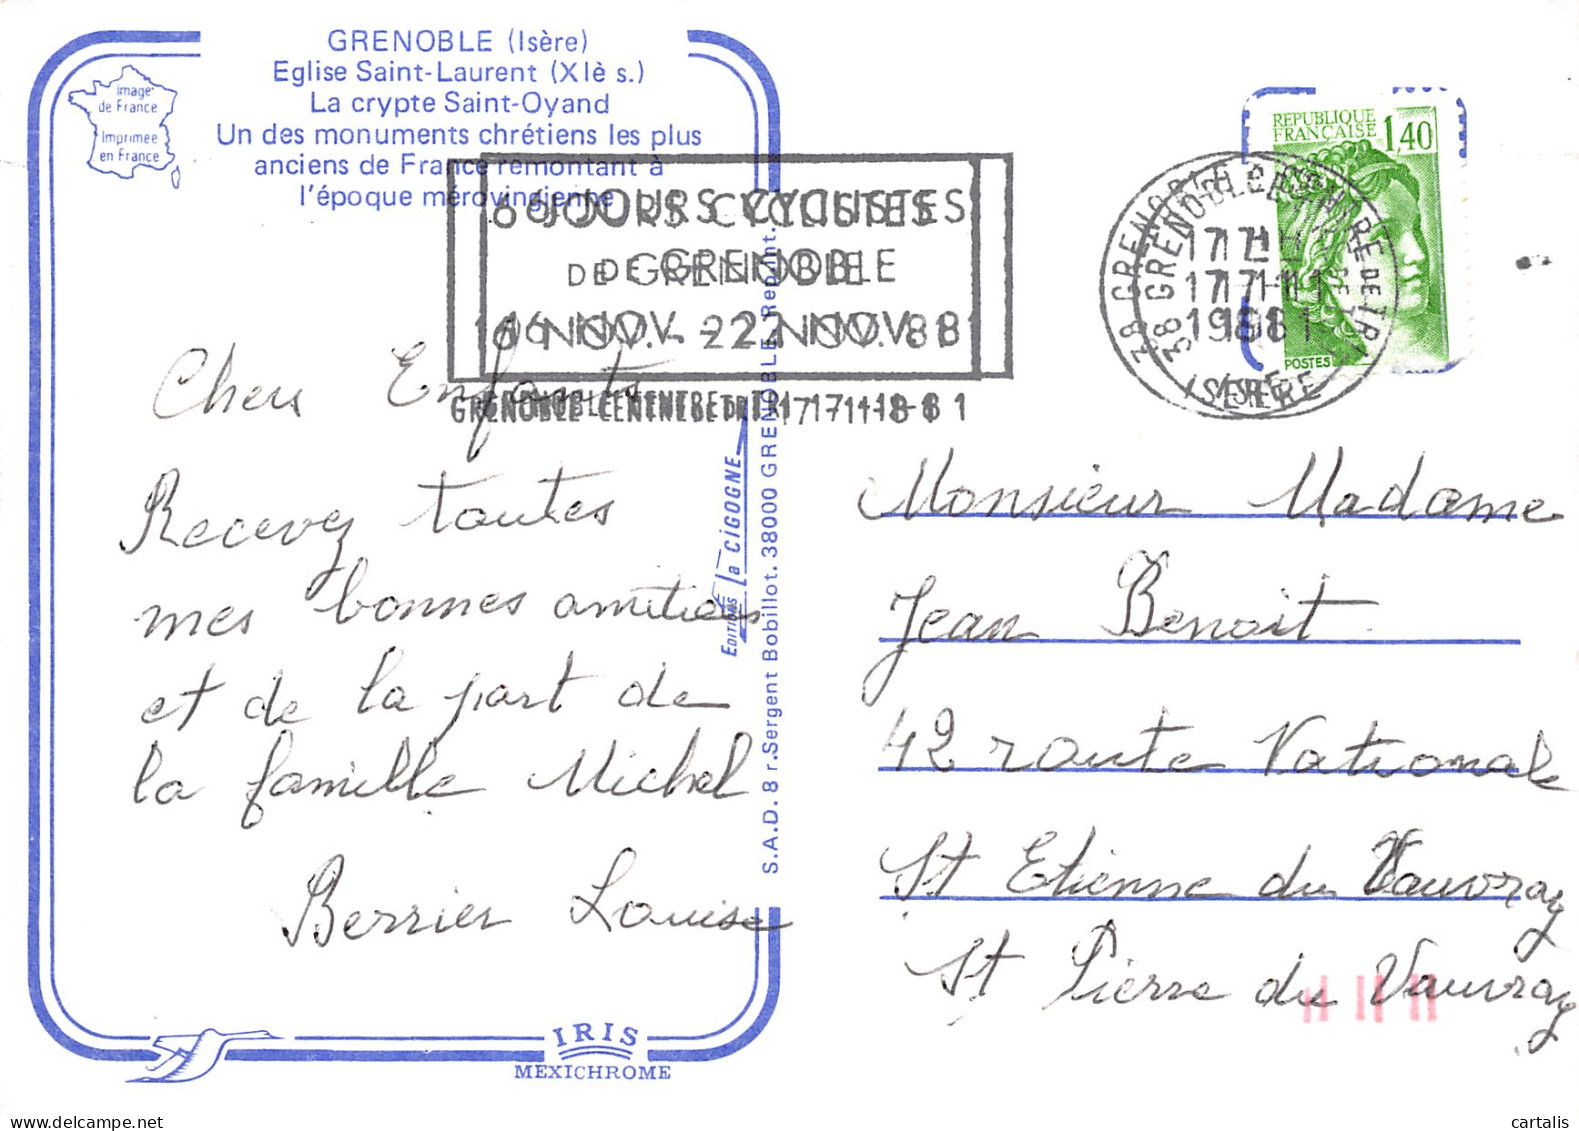 GRENOBLE (Isère)
Eglise Saint-Laurent (XIè s.)
La crypte Saint-Oyand
Un des monuments chrétiens les plus
anciens de France remontant à
l'époque mérovingienne
Image
de France
Imprimée
en France
6 JOURS CYCLISTES
DE GRENOBLE
16 NOV. - 22 NOV 81
GRENOBLE CENTRE DE TRI 17-11-81
REPUBLIQUE
FRANÇAISE 1,40
POSTES
38 GRENOBLE CENTRE DE TRI
17 H
17-11
1981
ISERE
Chers Enfants
Recevez toutes
mes bonnes amitiées
et de la part de
la famille Michel
Berrier Louise
EDITIONS la CIGOGNE
S.A.D. 8 r. Sergent Bobillot. 38000 GRENOBLE. Rep. int.
Monsieur Madame
Jean Benoit
42 route Nationale
St Etienne du Vauvray
St Pierre du Vauvray
IRIS
MEXICHROME
www.delcampe.net
cartalis